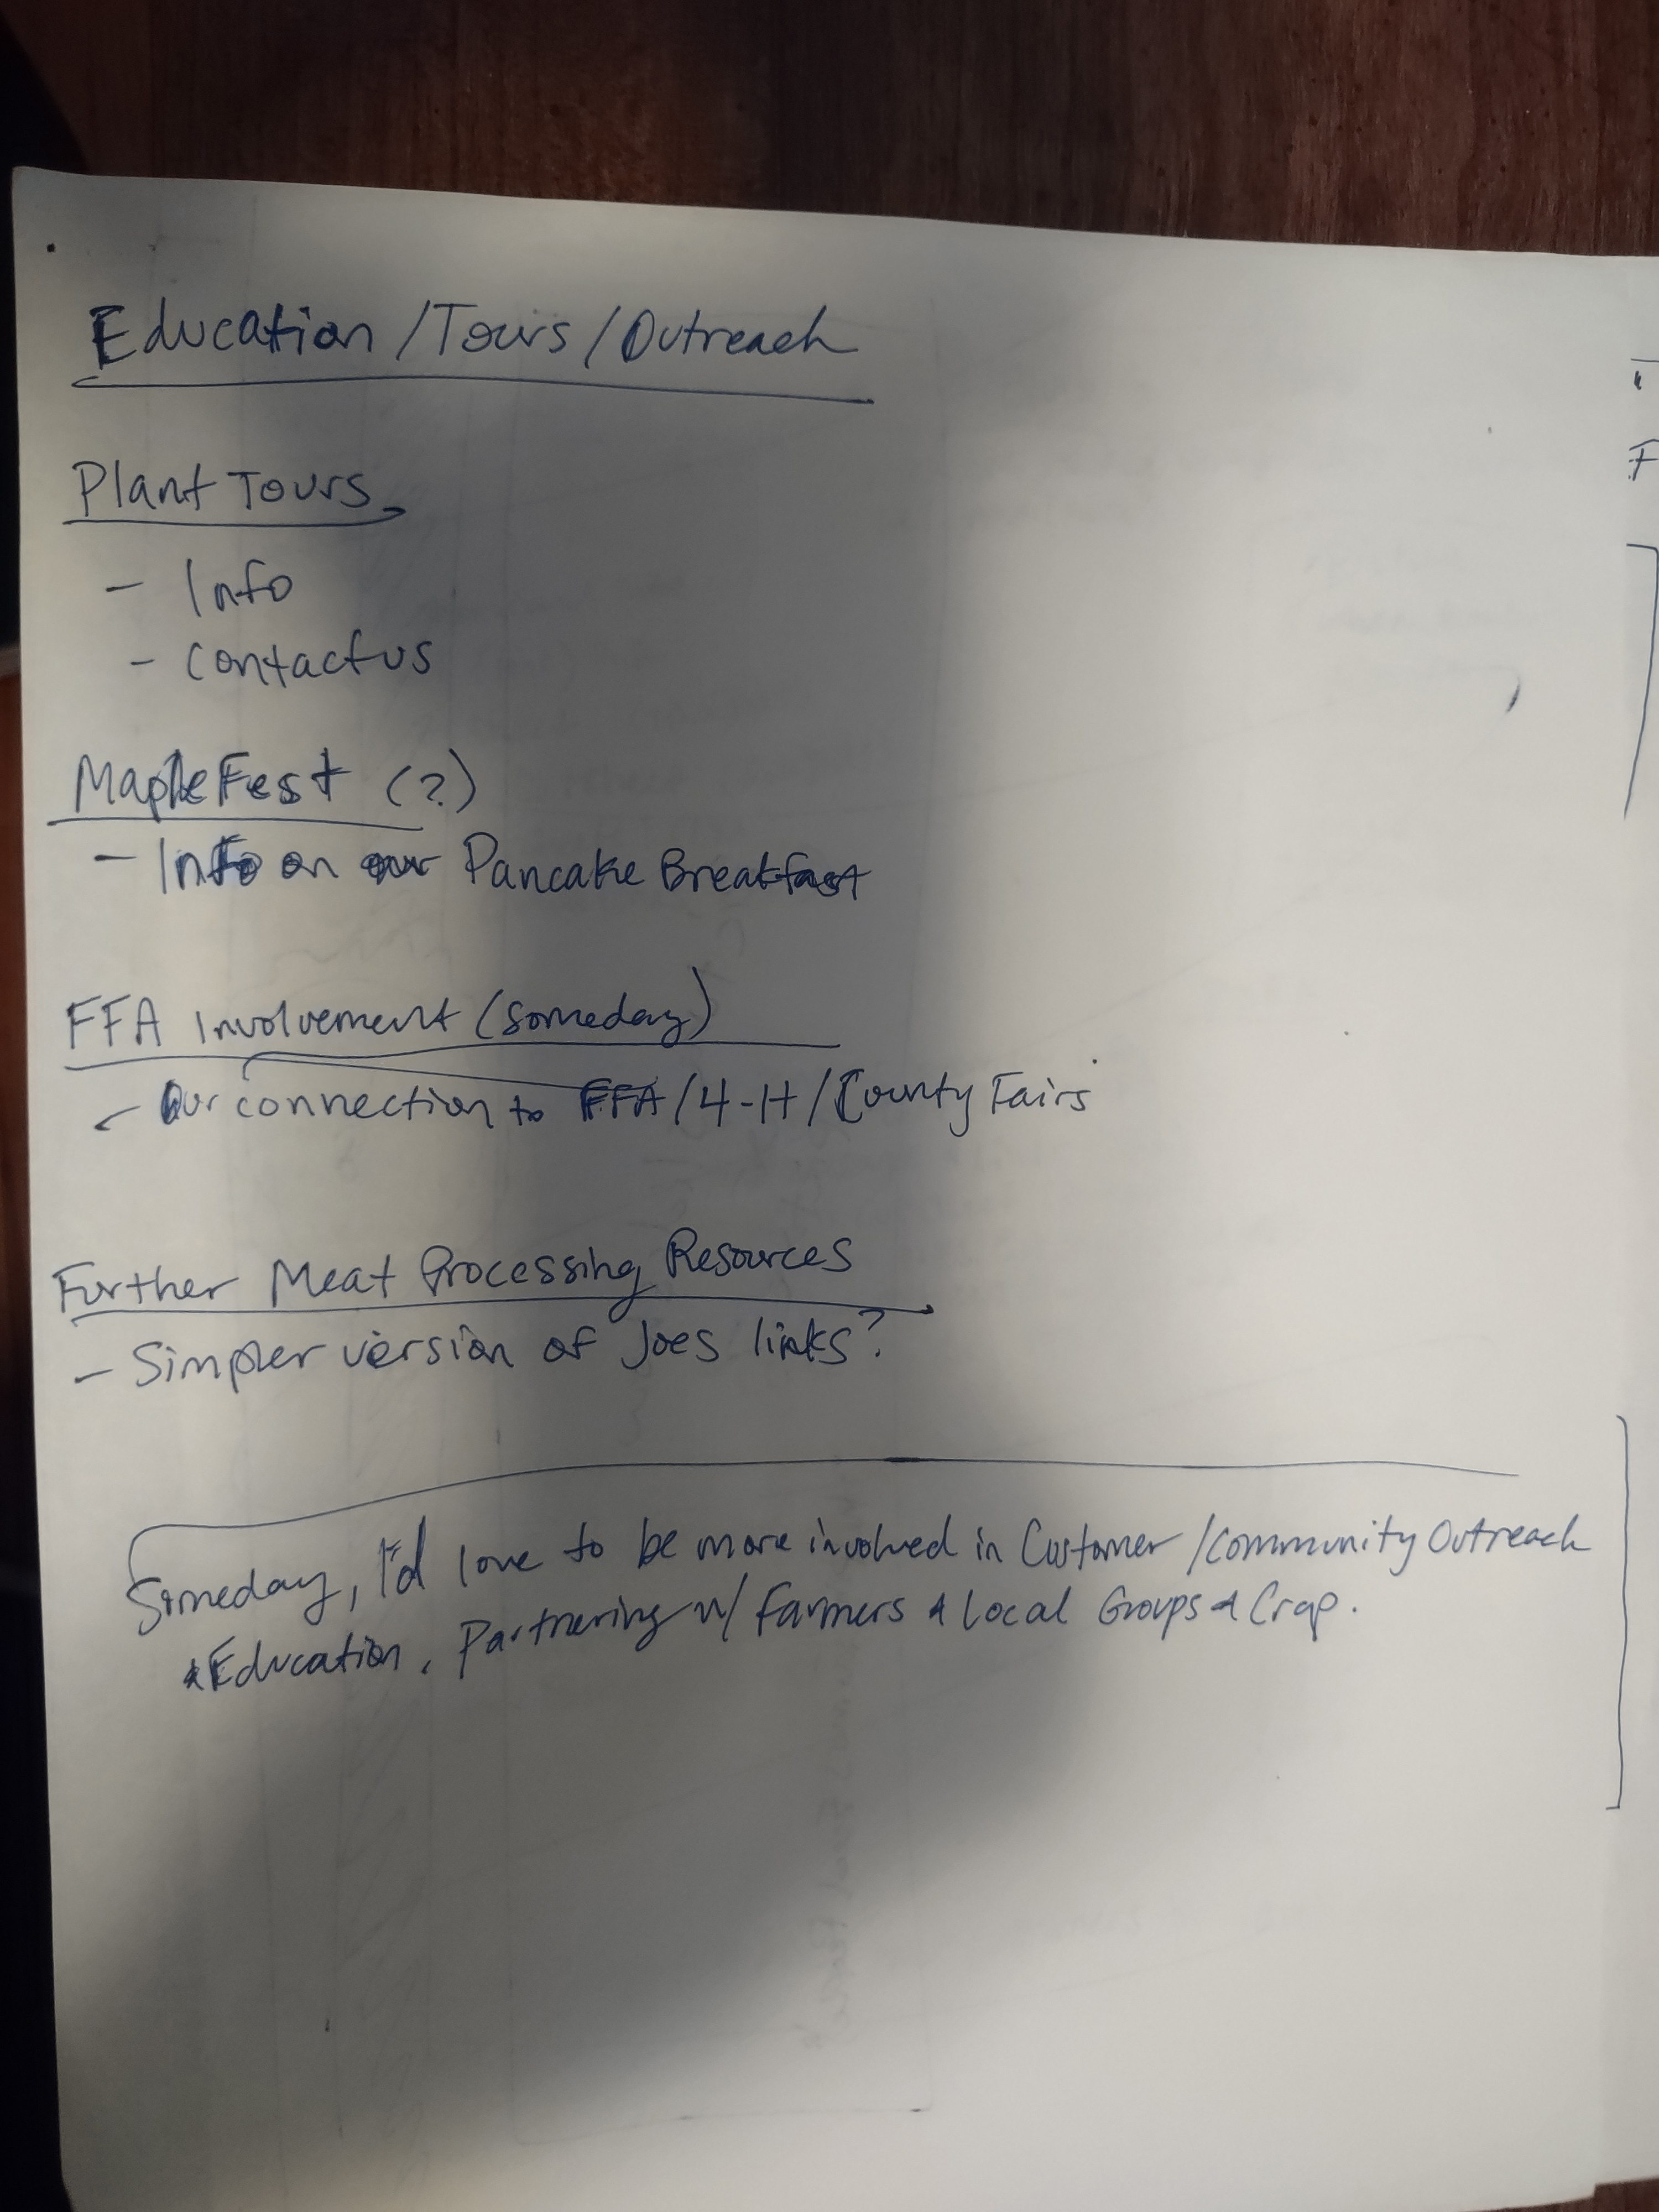 Education / Tours / Outreach
Plant Tours
- Info
- Contact us
MapleFest (?)
- Info on our Pancake Breakfast
FFA Involvement (Someday)
- Our connection to FFA / 4-H / County Fairs
Further Meat Processing Resources
- Simpler version of Joes links?
Someday, I'd love to be more involved in Customer / Community Outreach
& Education, Partnering w/ Farmers & Local Groups & Crap.
F